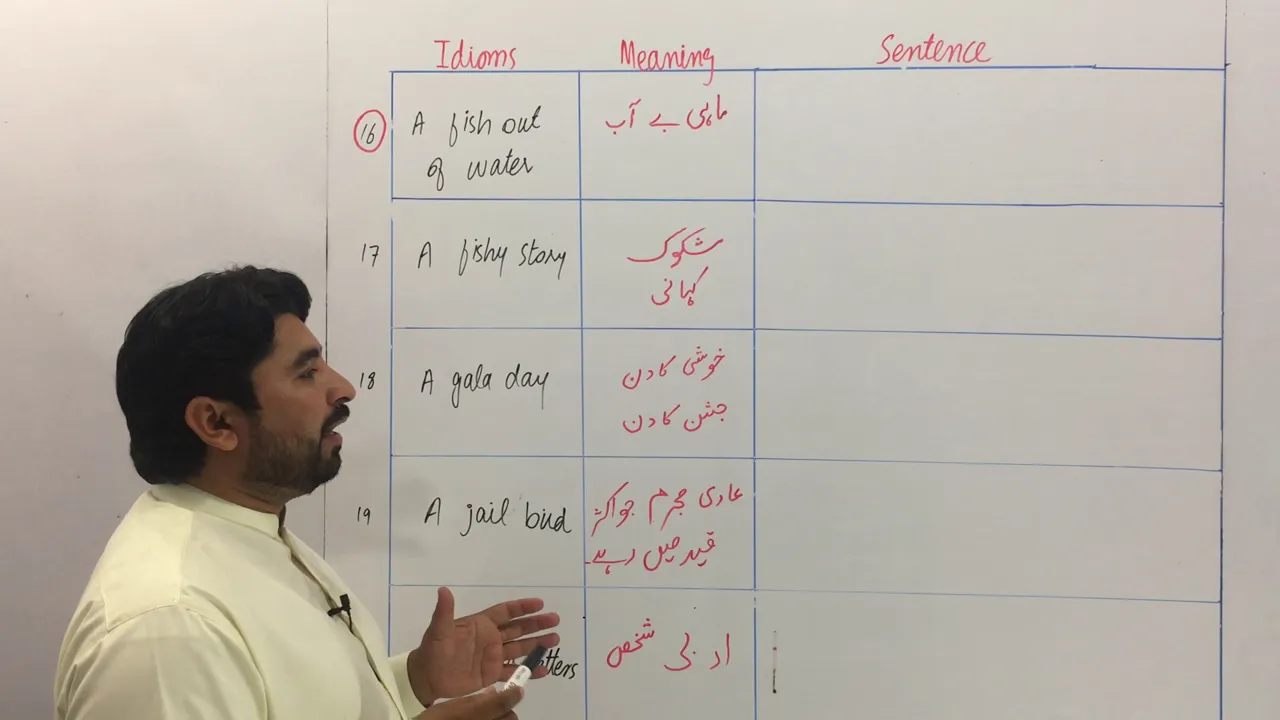 Idioms Meaning Sentence
16 A fish out ماہی بے آب
of water
17 A fishy story شکوک
کہانی
18 A gala day خوشی کا دن
جشن کا دن
19 A jail bird عادی مجرم جو اکثر
قید میں رہے
ادبی شخص